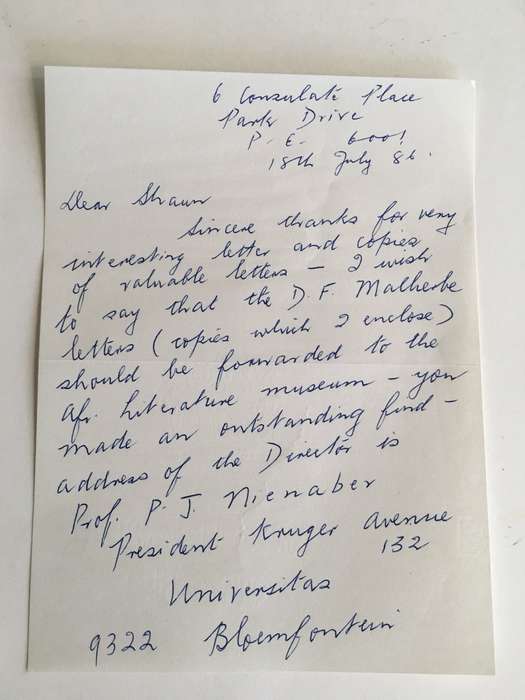 6 Consulate Place
Park Drive
P. E. 6001
18th July 86.
Dear Shaun
Sincere thanks for very
interesting letter and copies
of valuable letters – I wish
to say that the D. F. Malherbe
letters (copies which I enclose)
should be forwarded to the
Afr. Literature museum – you
made an outstanding find –
address of the Director is
Prof. P. J. Nienaber
President Kruger Avenue
132
Universitas
9322 Bloemfontein